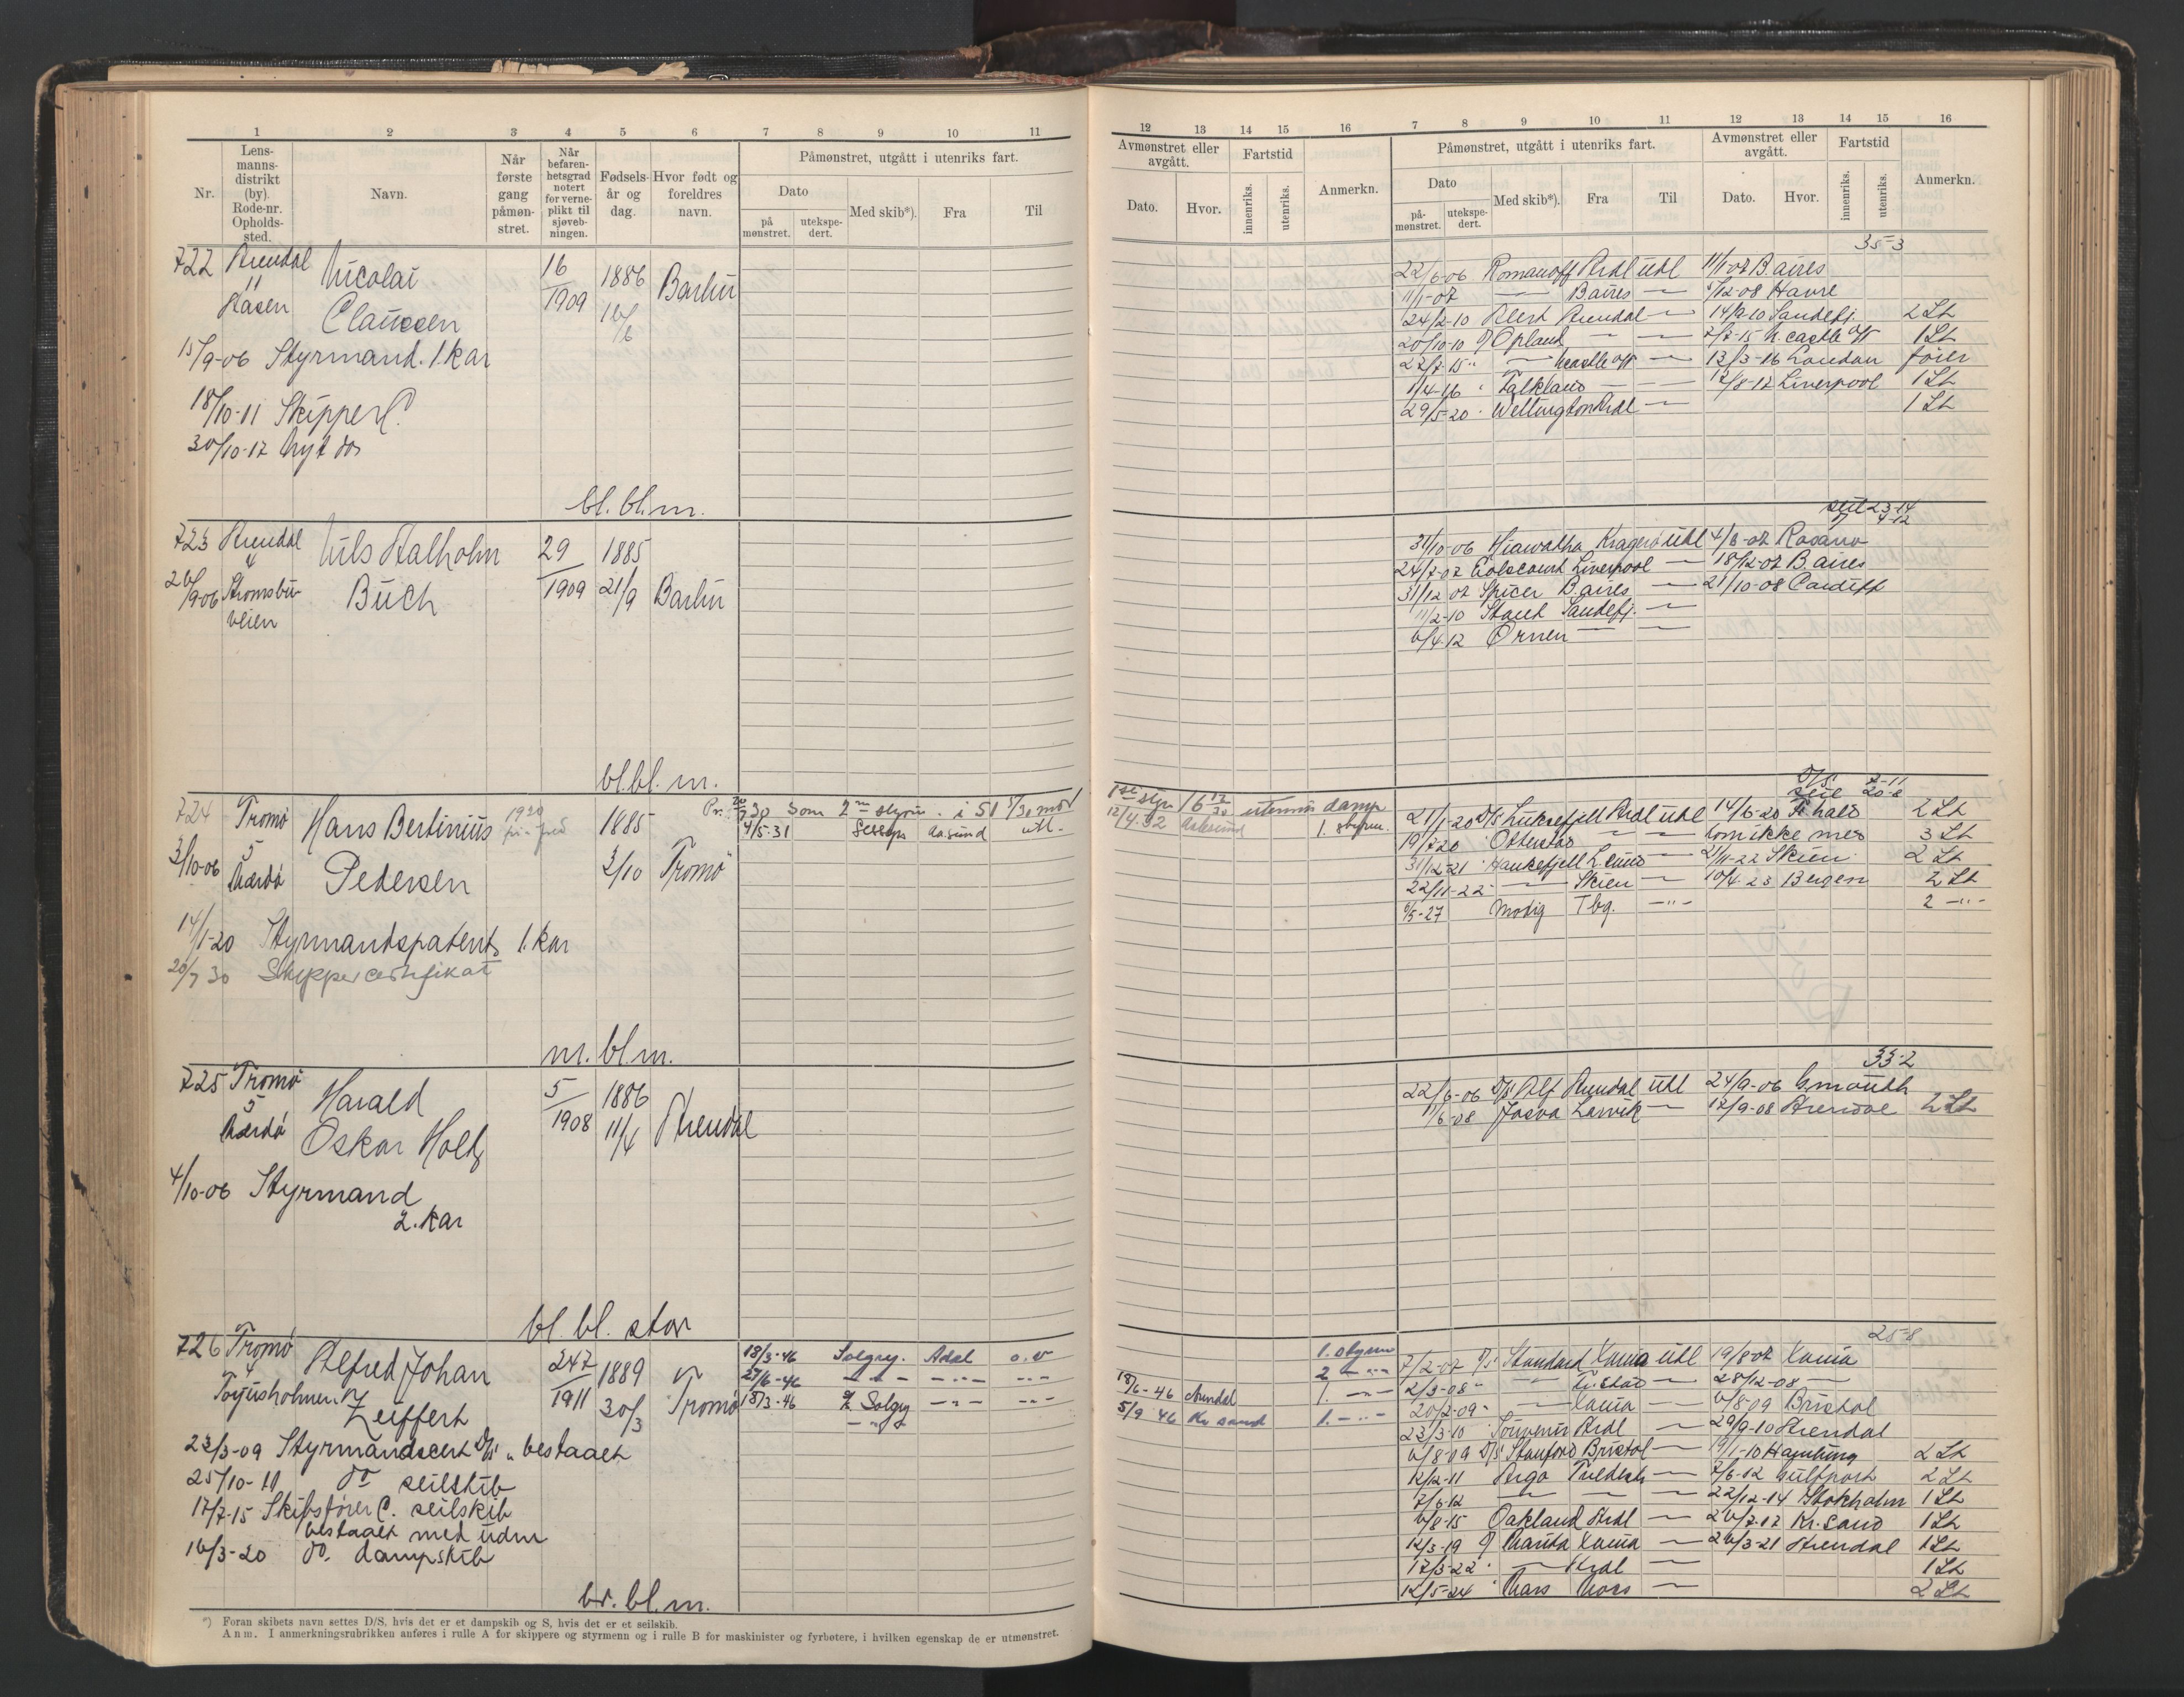 1 2 3 4 5 6 7 8 9 10 11
Nr.
Lens-
manns-
distrikt
(by).
Rode-nr.
Opholds-
sted.
Navn.
Når
første
gang
påmøn-
stret.
Når
befaren-
hetsgrad
notert
for verne-
plikt til
sjøveb-
ningen.
Fødsels-
år og
dag.
Hvor født og
foreldres
navn.
Påmønstret, utgått i utenriks fart.
Dato
på
mønstret.
utekspe-
dert.
Med skib*).
Fra
Til
722 Arendal Nicolai 16 1886 Barbu
11 1909 16/6
Hasen Claussen
15/9-06 Styrmand. 1. kar
18/10-11 Skipper C.
30/10-17 Nyt do
bl. bl. m.
723 Arendal Nils Aalholm 29 1885
4 1909 21/9 Barbu
26/9-06 Strømsbu-
veien Buch
bl. bl. m.
724 Tromø Hans Bertinius 1930 1885
5
3/10-06 Mærdø Pedersen 3/10 Tromø
4/5-31 Aa.sund utl.
14/1-20 Styrmandspatent 1. kar
20/7 30 Skippercertifikat
m. bl. m.
725 Tromø Harald 5 1886
5 1908 11/4 Arendal
Mærdø Oskar Holt
4/10-06 Styrmand
2. kar
bl. bl. stor
726 Tromø Alfred Johan 247 1889
4 1911 30/3 Tromø
Torjusholmen Zeiffert
18/3-46 Solgry. Adal o.v
27/6-46 — — —
18/3-46 Solgry — — —
23/3-09 Styrmandscert D/S bestaaet
25/10-11 do seilskib
17/7-15 Skibsfører C. seilskib
bestaaet med udm
16/3-20 do. dampskib
br. bl. m.
*) Foran skibets navn settes D/S, hvis det er et dampskib og S, hvis det er et seilskib.
Anm. I anmerkningsrubrikken anføres i rulle A for skippere og styrmenn og i rulle B for maskinister og fyrbøtere, i hvilken egenskap de er utmønstret.
12 13 14 15 16 7 8 9 10 11 12 13 14 15 16
Avmønstret eller
avgått.
Dato.
Hvor.
Fartstid
innenriks.
utenriks.
Anmerkn.
Påmønstret, utgått i utenriks fart.
Dato
på-
mønstret.
utekspe-
dert.
Med skib*).
Fra
Til
Avmønstret eller
avgått.
Dato.
Hvor.
Fartstid
innenriks.
utenriks.
Anmerkn.
35-3
22/6-06 Romanoff Ardl utl 11/1-07 B. aires
11/1-07 — B aires — /12-08 Havre
24/2-10 Alert Arendal — 14/9-10 Sandefj. 2 St
20/10-10 Opland — — 7/7-15 N. castle 1 St
22/7-15 — — 13/3-16 London fører
1/4-16 Falkland — — 17/8-17 Liverpool 1 St
29/5-20 Wellington Ardl — 1 St
seil 23-14
4-12
31/10-06 Hiawatha Kragerø utl 4/6-07 Rosario
24/7-07 Liverpool — 18/12-07 B. aires
31/12 07 Spicer B. aires — 21/10-08 Cardiff
11/2-10 Sandefj. —
6/4-12 Ørnen — —
D/S 2-11
seil 20-8
12/4.32 Aalesund 1. styrm.
21/1-20 D/S Ardl utl 14/6-20 Fr. hald 2 St
19/7 20 Otterstad — — kom ikke med 3 St
31/12-21 Haukefjell — 2/11-22 Skien 2 St
22/11-22 — Skien — 10/4-23 Bergen 2 St
/5-27 Modig Tbg. — 2 —
33-2
22/6-06 D/S Alf Arendal utl 24/9-06
11/6-08 Larvik — 17/9-08 Arendal 2 St
25-8
1. styrm
2 —
18/6-46 Arendal 1. —
5/9 46 Kr sand 1. —
7/2-07 Standard Xania utl 19/8-07 Xania
2/3-08 — Fr.stad — 28/12-08 —
20/2-09 — Xania — 6/8-09 Bristol
23/3-10 Souvenir Ardl — 29/9-10 Arendal
6/8-09 D/S Stanford Bristol — 19/1-10 Hamburg 2 St
12/2-11 Argo — 7/6-12 Gulfport 2 St
7/6-12 — — — 22/12-14 Stokholm 1 St
6/8-15 Oakland Ardl — 26/7-17 Kr. sand 1 St
12/3-19 Xania — 26/3-21 Arendal 1 St
17/3-22 — Ardl — 1 St
12/5-24 Mars Moss — 2 St